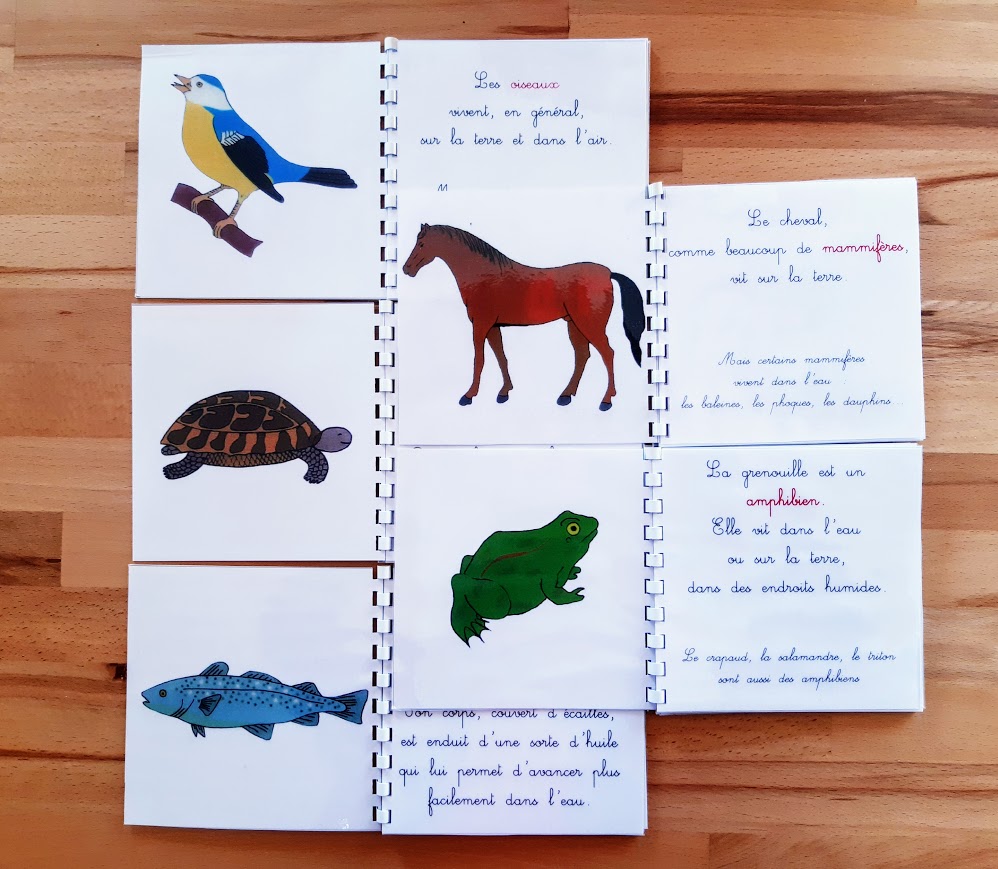 Les oiseaux
vivent, en général,
sur la terre et dans l'air.
Le cheval,
comme beaucoup de mammifères,
vit sur la terre.
Mais certains mammifères
vivent dans l'eau :
les baleines, les phoques, les dauphins...
La grenouille est un
amphibien.
Elle vit dans l'eau
ou sur la terre,
dans des endroits humides.
Le crapaud, la salamandre, le triton
sont aussi des amphibiens
Son corps, couvert d'écailles,
est enduit d'une sorte d'huile
qui lui permet d'avancer plus
facilement dans l'eau.